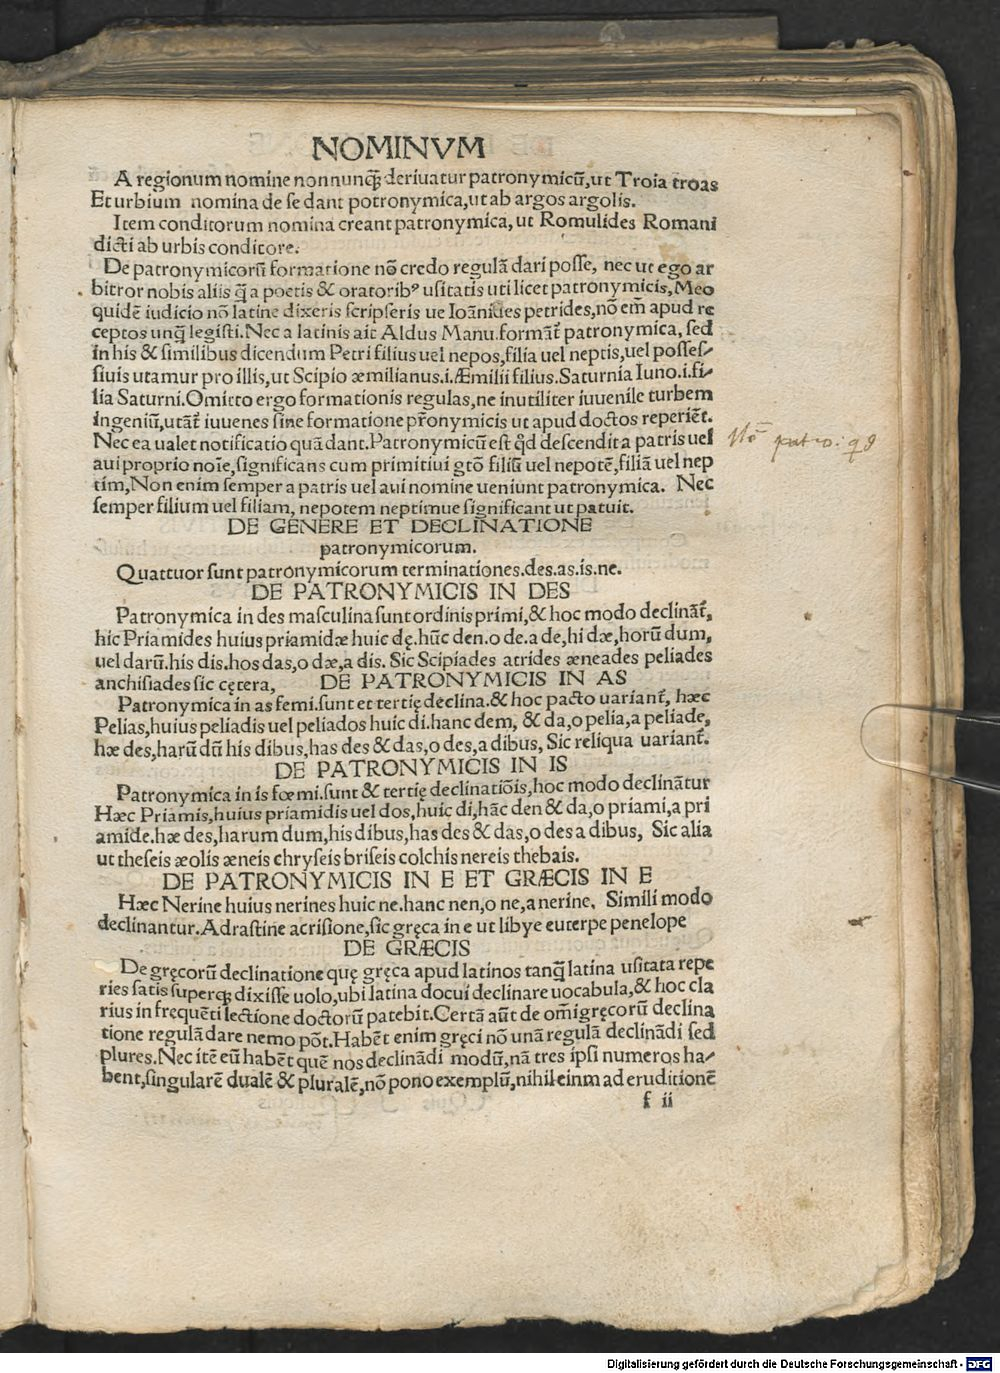 NOMINVM
A regionum nomine nonnunꝗ̃ deriuatur patronymicũ,ut Troia troas
Et urbium nomina de se dant potronymica,ut ab argos argolis.
Item conditorum nomina creant patronymica, ut Romulides Romani
dicti ab urbis conditore.
De patronymicorũ formatione nõ credo regulã dari posse, nec ut ego ar
bitror nobis aliis ꝗ̃ a poetis & oratoribꝰ usitatis uti licet patronymicis, Meo
quidẽ iudicio nõ latine dixeris scripseris ue Ioãnides petrides,nõ em̃ apud re
ceptos unꝗ̃ legisti. Nec a latinis ait Aldus Manu. formãt̃ patronymica, sed
in his & similibus dicendum Petri filius uel nepos,filia uel neptis,uel posses/
siuis utamur pro illis,ut Scipio æmilianus.i.Æmilii filius.Saturnia Iuno.i.fi/
lia Saturni.Omitto ergo formationis regulas,ne inutiliter iuuenile turbem
ingeniũ,utãt̃ iuuenes sine formatione pr̃onymicis ut apud doctos reperiẽt̃.
Nec ea ualet notificatio quã dant.Patronymicũ est ꝗd descendit a patris uel
aui proprio noĩe,significans cum primitiui gtõ filiũ uel nepotẽ,filiã uel nep
tim,Non enim semper a patris uel aui nomine ueniunt patronymica. Nec
semper filium uel filiam, nepotem neptimue significant ut patuit.
DE GENERE ET DECLINATIONE
patronymicorum.
Quattuor sunt patronymicorum terminationes.des.as.is.ne.
DE PATRONYMICIS IN DES
Patronymica in des masculina sunt ordinis primi,& hoc modo declinãt̃,
hic Priamides huius priamidæ huic dę.hũc den.o de.a de,hi dæ,horũ dum,
uel darũ.his dis.hos das,o dæ,a dis. Sic Scipiades atrides æneades peliades
anchisiades sic cętera, DE PATRONYMICIS IN AS
Patronymica in as femi.sunt et tertię declina.& hoc pacto uariant̃, hæc
Pelias,huius peliadis uel peliados huic di.hanc dem, & da,o pelia,a peliade,
hæ des,harũ dũ his dibus,has des & das,o des,a dibus, Sic reliqua uariant̃.
DE PATRONYMICIS IN IS
Patronymica in is fœmi.sunt & tertię declinatiõis,hoc modo declinãtur
Hæc Priamis,huius priamidis uel dos,huic di,hãc den & da,o priami,a pri
amide.hæ des,harum dum,his dibus,has des & das,o des a dibus, Sic alia
ut theseis æolis æneis chryseis briseis colchis nereis thebais.
DE PATRONYMICIS IN E ET GRÆCIS IN E
Hæc Nerine huius nerines huic ne.hanc nen,o ne,a nerine, Simili modo
declinantur.Adrastine acrisione,sic gręca in e ut libye euterpe penelope
DE GRÆCIS
De gręcorũ declinatione quę gręca apud latinos tanꝗ̃ latina usitata repe
ries satis superqꝫ dixisse uolo,ubi latina docui declinare uocabula,& hoc cla
rius in frequẽti lectione doctorũ patebit.Certã aũt de om̃i gręcorũ declina
tione regulã dare nemo põt.Habẽt enim gręci nõ unã regulã declinãdi sed
plures.Nec itẽ eũ habẽt quẽ nos declinãdi modũ,nã tres ipsi numeros ha/
bent,singularẽ dualẽ & pluralẽ,nõ pono exemplũ,nihil einm ad eruditionẽ
f ii
Digitalisierung gefördert durch die Deutsche Forschungsgemeinschaft - DFG